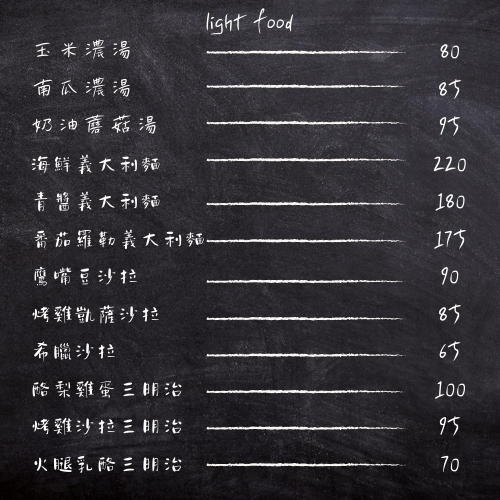 light food
玉米濃湯 80
南瓜濃湯 85
奶油蘑菇湯 95
海鮮義大利麵 220
青醬義大利麵 180
番茄羅勒義大利麵 175
鷹嘴豆沙拉 90
烤雞凱薩沙拉 85
希臘沙拉 65
酪梨雞蛋三明治 100
烤雞沙拉三明治 95
火腿乳酪三明治 70